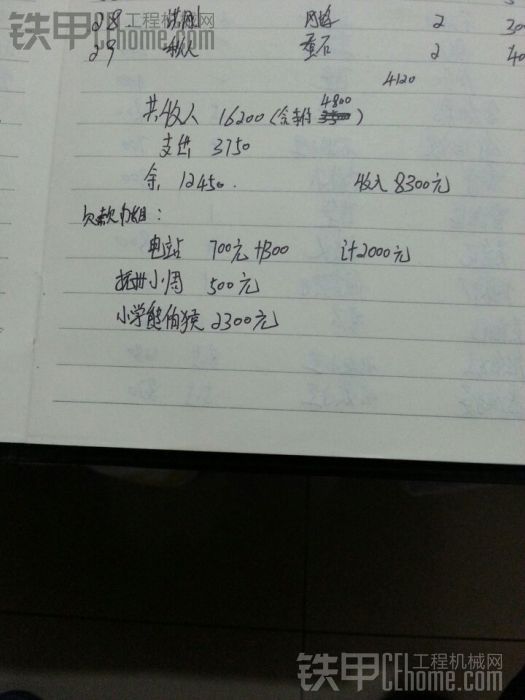 铁甲 工程机械网
CEhome.com
28 2 30
29 垂石 2 40
4120
4800
共收入 16200(余款 3500)
支出 3750
余 12450. 收入 8300元
欠款明细:
电站 700元+1300 计2000元
小周 500元
小学熊伯 2300元
铁甲 工程机械网
CEhome.com